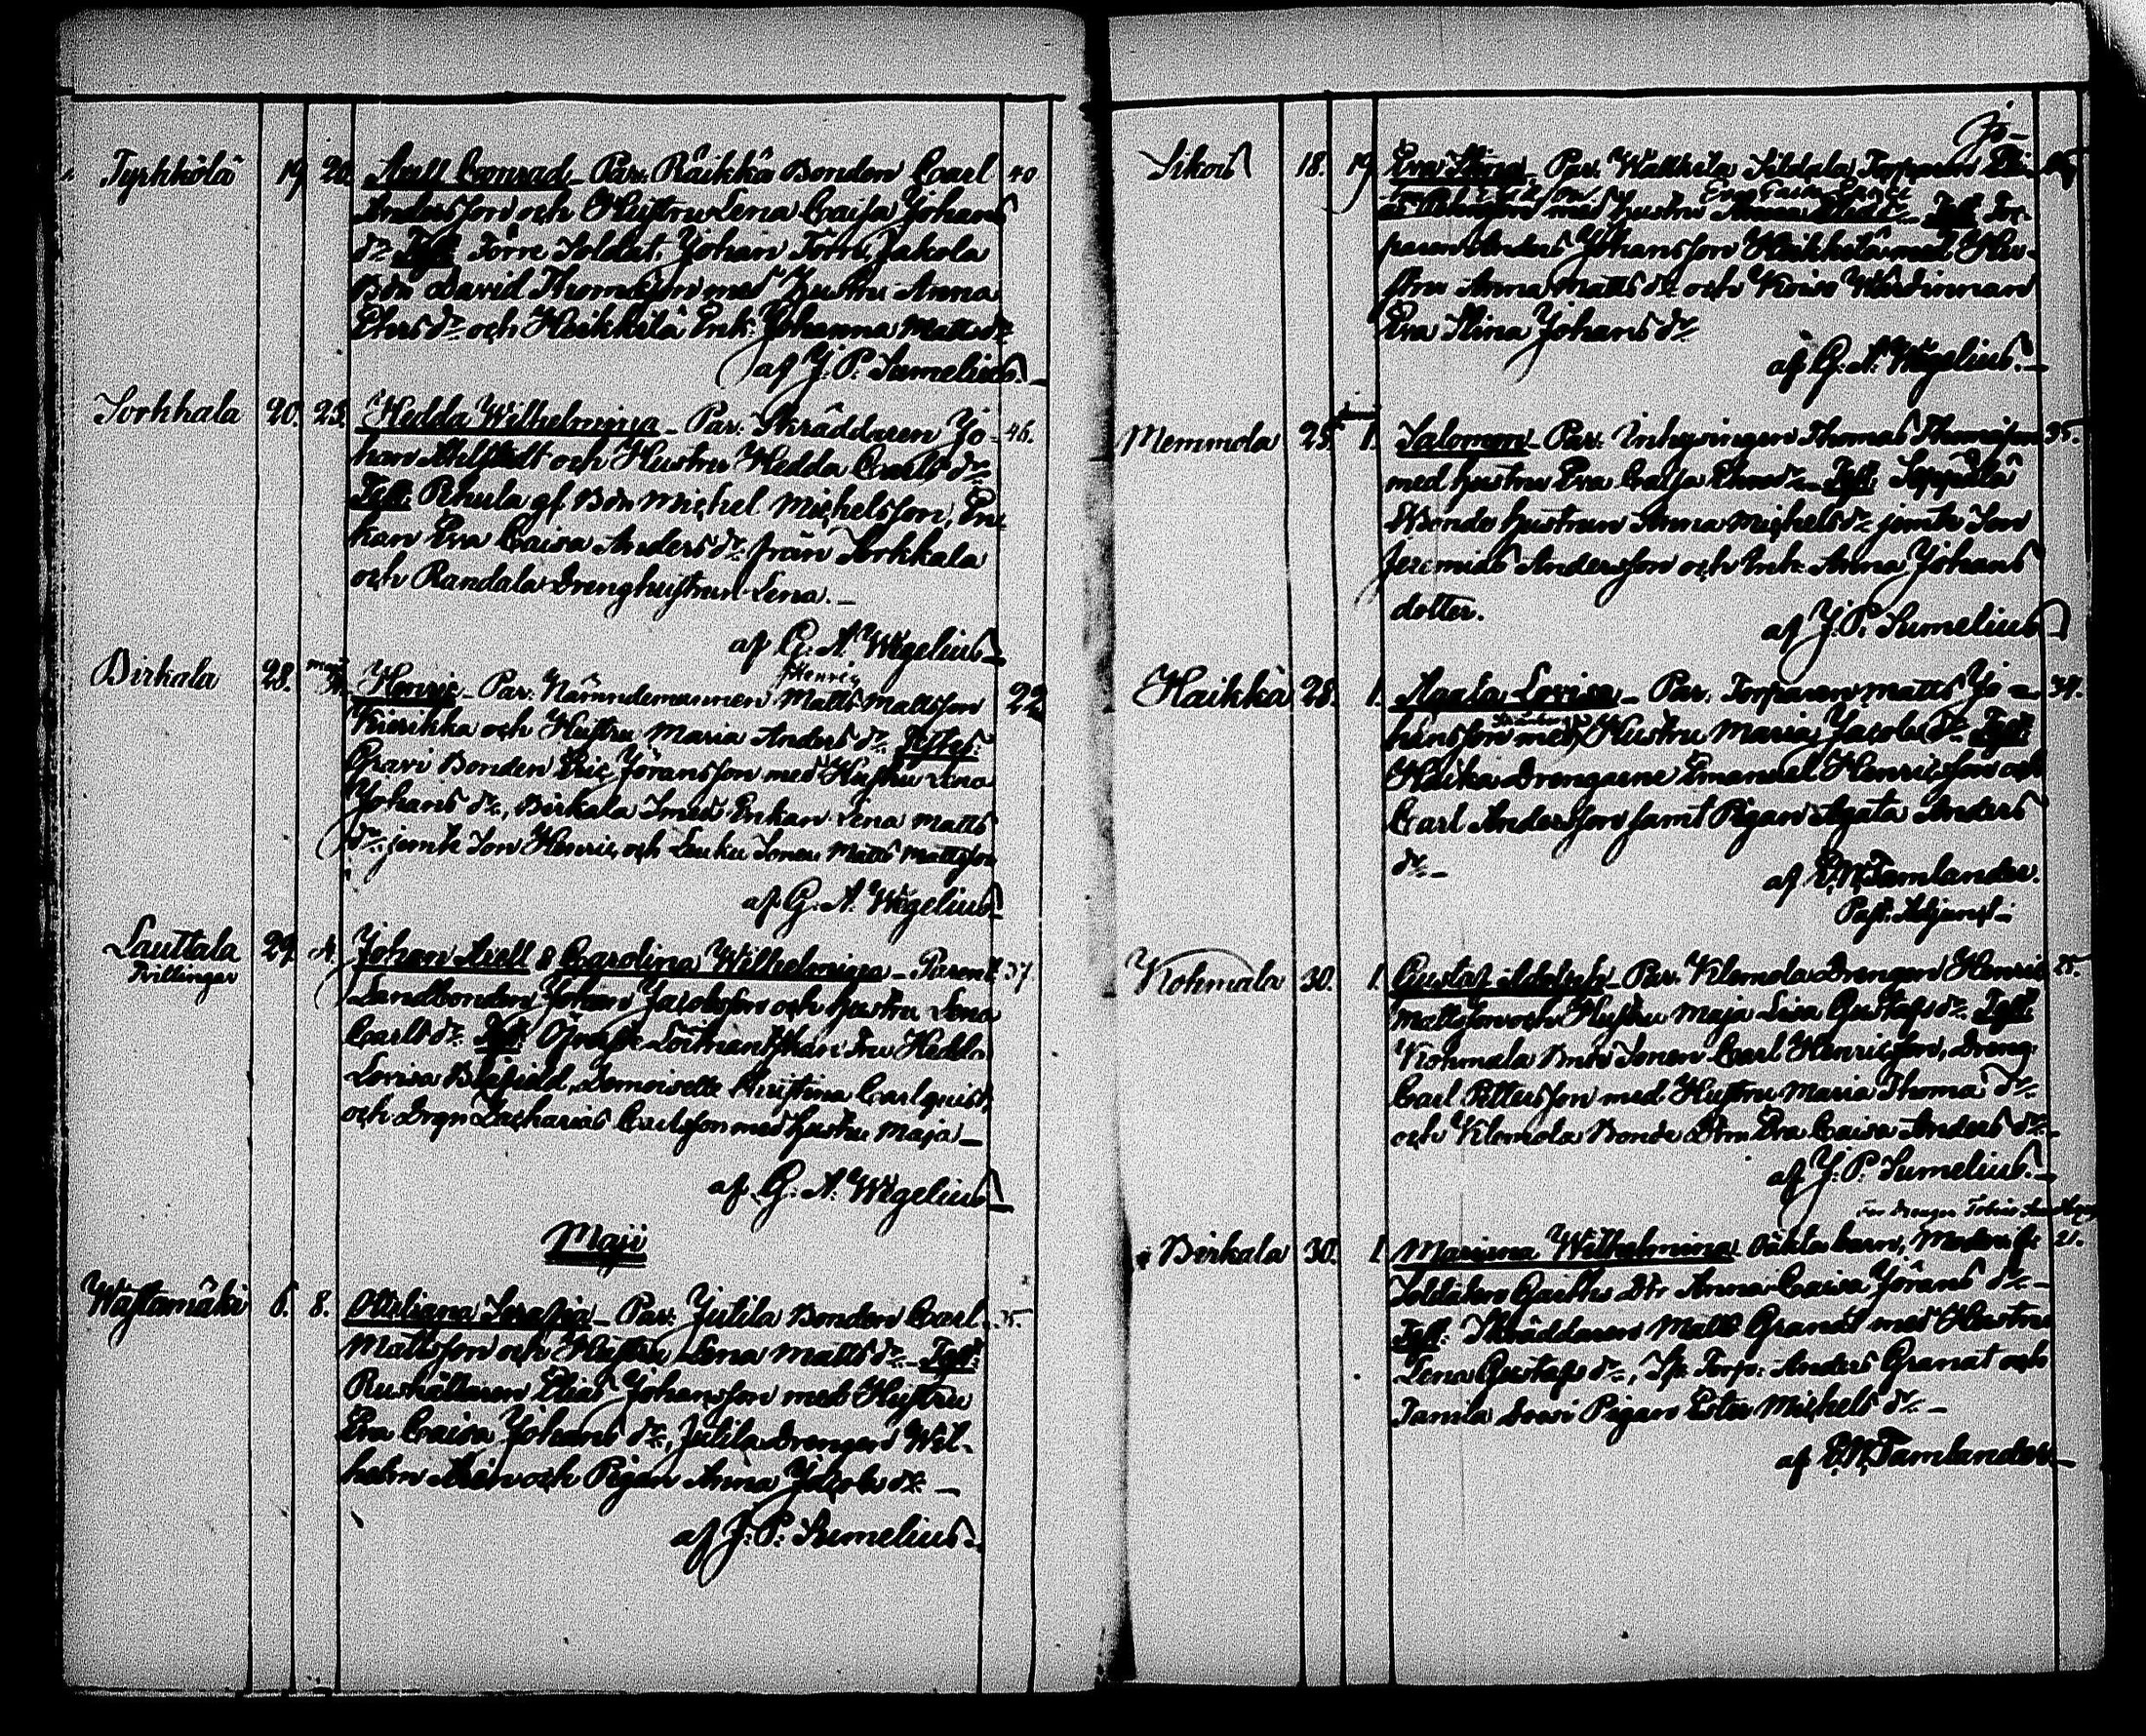 Tyrkkölä 19 20. Axell Conrad_ Par. Räikkä Bonden Carl 40
Andersson och Hustru Lena Caisa Johans
dr. Test. Torre Soldat Johan Torn, Jakola
Bdn David Thomasson med Hustru Anna
Ehrs dr. och Heikkilä Enk. Johanna Matts dr
af J. P. Sumelius._
Sorkkala 20. 23. Hedda Wilhelmina_ Par. Skräddaren Jo- 46.
han Ahlstedt och Hustru Hedda Carls dr.
Test. Pehula gf. Bdn Michel Michelsson, En
kan Eva Caisa Anders dr. från Sorkkala
och Randala Drenghustrun Lena._
af G. A. Wegelius_
Birkala 28. maji Henric_ Par. Nämndemannen Matts Mattsson 22
Henric
Kierikka och Hustru Maria Anders dr. Testes:
Bonden Eric Jöransson med Hustru Lena
Johans dr., Birkala Enkan Lena Matts
dr. jemte Son Henric och Sonen Matts Mattsson
af G. A. Wegelius_
Lauttala 29 Johan Axell & Carolina Wilhelmina_ Paren 37.
Tvillingar
Landbonden Johan Jacobsson och hustru Lena
Carls dr. Test. Löitnantskan Fru Hedda
Lovisa Demoiselle Kristina Carlquist,
och Drgn Zacharias Carlsson med hustru Maja_
af G. A. Wegelius_
Maji
Wästamäki 6. 8. Otteliana Serafia_ Par. Jutila Bonden Carl 35.
Mattsson och Hustru Lena Matts dr._ Test:
Rusthållaren Elias Johansson med Hustru
Eva Caisa Johans dr., Jutila Drengen Wil-
helm och Pigan Anna Jacobs dr. _
af J. P. Sumelius_
Sikois 18. 19. Eva Stina_ Par. Torparen
med hustru Test. Tor-
paren Anders Johansson Heikkilä med Hu-
stru Anna Matts dr. och
Eva Stina Johans dr.
af G. A. Wegelius._
Memmola 25. 1. Salomon_ Par. Inhysingen Thomas Thomasson 35.
med hustru Eva Caisa dr._ Test. Seppälä
Bonde hustrun Anna Michels dr. jemte Son
Jeremias Andersson och Enk. Anna Johans
dotter.
af J. P. Sumelius
Haikka 28. 1. Agata Lovisa_ Par. Torparen Matts Jo- 34.
hansson med Hustru Maria Jacobs dr. Test:
Haika Drengarne Emanuel Henricsson och
Carl Andersson samt Pigan Agata Anders
dr._
af E. N. Tamlander.
Past. Adjunct._
Kohmala 30. 1. Gustaf Adolph_ Par. Klemola Drengen Henric 25.
Mattsson och Hustru Maja Lisa Gustafs dr. Test:
Kohmala Bnds Sonen Carl Henricsson, Dreng
Carl Pettersson med Hustru Maria Thoma dr.
och Klemola Bonde Dtrn Eva Caisa Anders dr._
af J. P. Sumelius._
Birkala 30. 1. Mariana Wilhelmina oäkta barn, Modren fr 21.
Soldaten Dtr Anna Caisa Jörans dr._
Test: Skräddaren Matts Granat med Hustru
Lena Gustafs dr., Torp. Anders Granat och
Tanila Pigan Ester Michels dr._
af E. N. Tamlander_